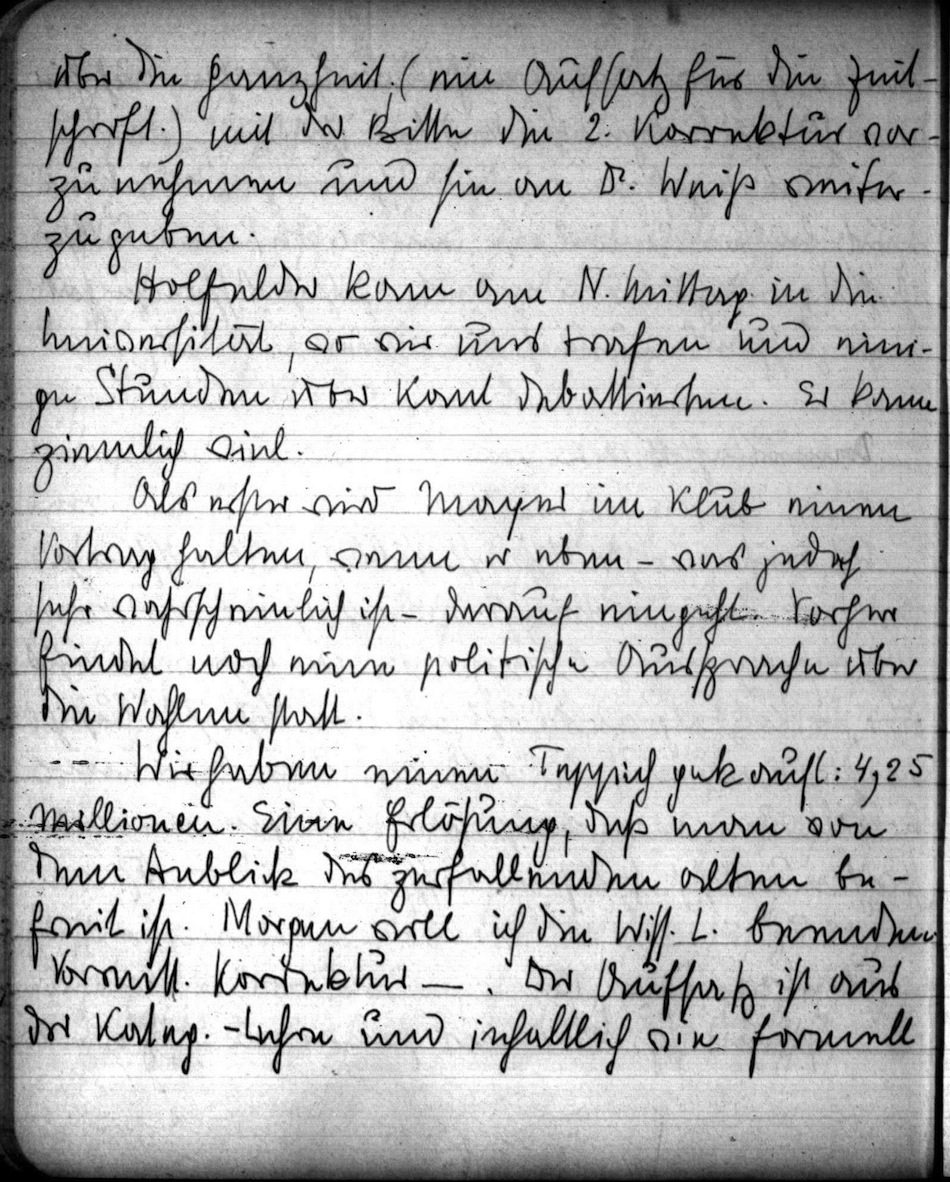 über die Ganzheit. (ein Aufsatz für die Zeit-
schrift.) mit der Bitte die 2. Korrektur vor-
zunehmen und sie an Dr. Weiß weiter-
zugeben.
Holfelder kam am N. Mittag in die
Universität, wo wir uns trafen und eini-
ge Stunden über Kant debattierten. Er kann
ziemlich viel.
Als erster wird Mayer im Klub einen
Vortrag halten, wenn er eben - was jedoch
sehr wahrscheinlich ist - darauf eingeht. Vorher
findet noch eine politische Aussprache über
die Wahlen statt.
--- Wir haben einen Teppich gekauft: 4,25
Millionen. Eine Erlösung, daß man von
dem Anblick des zerfallenden alten be-
freit ist. Morgen will ich die Wiss. L. beenden
Vormitt. Korrektur — . Der Aufsatz ist aus
der Kateg. -Lehre und inhaltlich wie formell